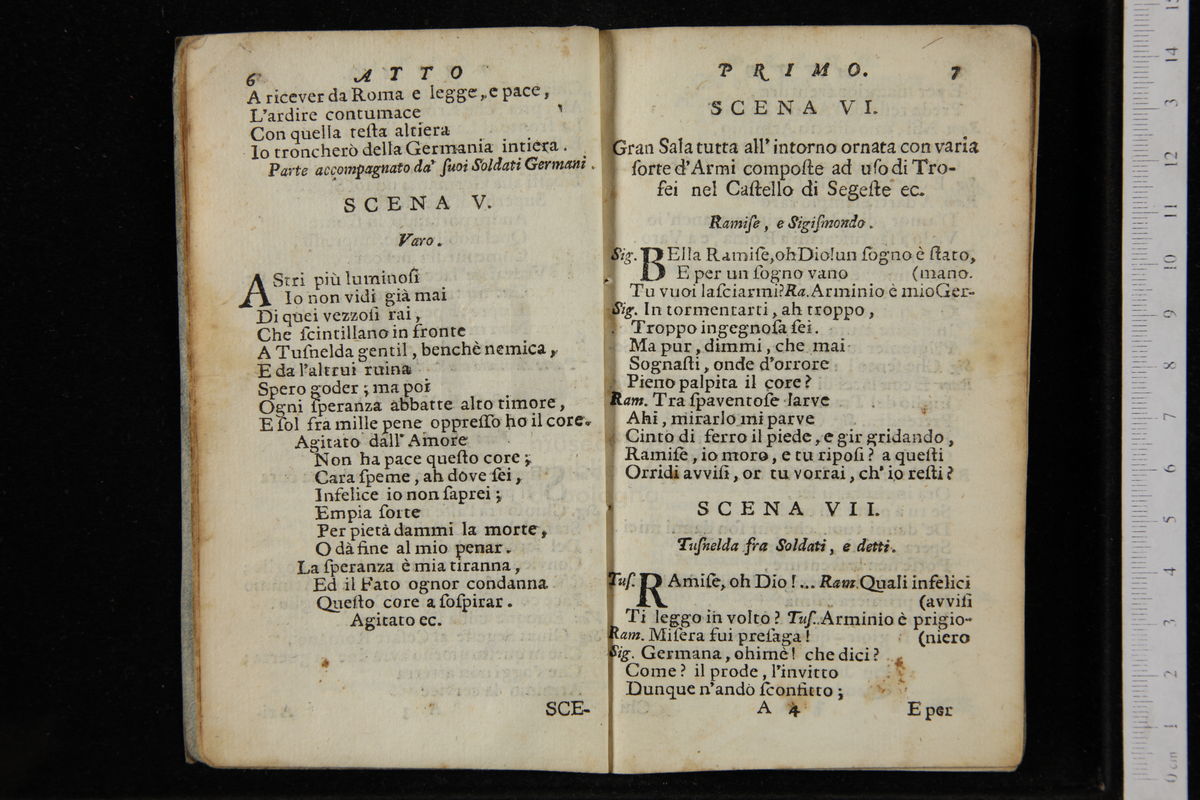 6 ATTO
A ricever da Roma e legge, e pace,
L'ardire contumace
Con quella teſta altiera
Io troncherò della Germania intiera.
Parte accompagnato da' ſuoi Soldati Germani.
SCENA V.
Varo.
AStri più luminoſi
Io non vidi già mai
Di quei vezzoſi rai,
Che ſcintillano in fronte
A Tuſnelda gentil, benchè nemica,
E da l'altrui ruina
Spero goder; ma poi
Ogni ſperanza abbatte alto timore,
E ſol fra mille pene oppreſſo ho il core.
Agitato dall' Amore
Non ha pace queſto core;
Cara ſpeme, ah dove ſei,
Infelice io non ſaprei;
Empia ſorte
Per pietà dammi la morte,
O dà fine al mio penar.
La ſperanza è mia tiranna,
Ed il Fato ognor condanna
Queſto core a ſoſpirar.
Agitato ec.
SCE-
PRIMO. 7
SCENA VI.
Gran Sala tutta all' intorno ornata con varia
ſorte d'Armi compoſte ad uſo di Tro-
fei nel Caſtello di Segeſte ec.
Ramiſe, e Sigiſmondo.
Sig. BElla Ramiſe, oh Dio! un ſogno è ſtato,
E per un ſogno vano (mano.
Tu vuoi laſciarmi? Ra. Arminio è mio Ger-
Sig. In tormentarti, ah troppo,
Troppo ingegnoſa ſei.
Ma pur, dimmi, che mai
Sognaſti, onde d'orrore
Pieno palpita il core?
Ram. Tra ſpaventoſe larve
Ahi, mirarlo mi parve
Cinto di ferro il piede, e gir gridando,
Ramiſe, io moro, e tu ripoſi? a queſti
Orridi avviſi, or tu vorrai, ch' io reſti?
SCENA VII.
Tuſnelda fra Soldati, e detti.
Tuſ. RAmiſe, oh Dio!... Ram. Quali infelici
(avviſi
Ti leggo in volto? Tuſ. Arminio è prigio-
Ram. Miſera fui preſaga! (niero
Sig. Germana, ohimè! che dici?
Come? il prode, l'invitto
Dunque n'andò ſconfitto;
A 4 E per